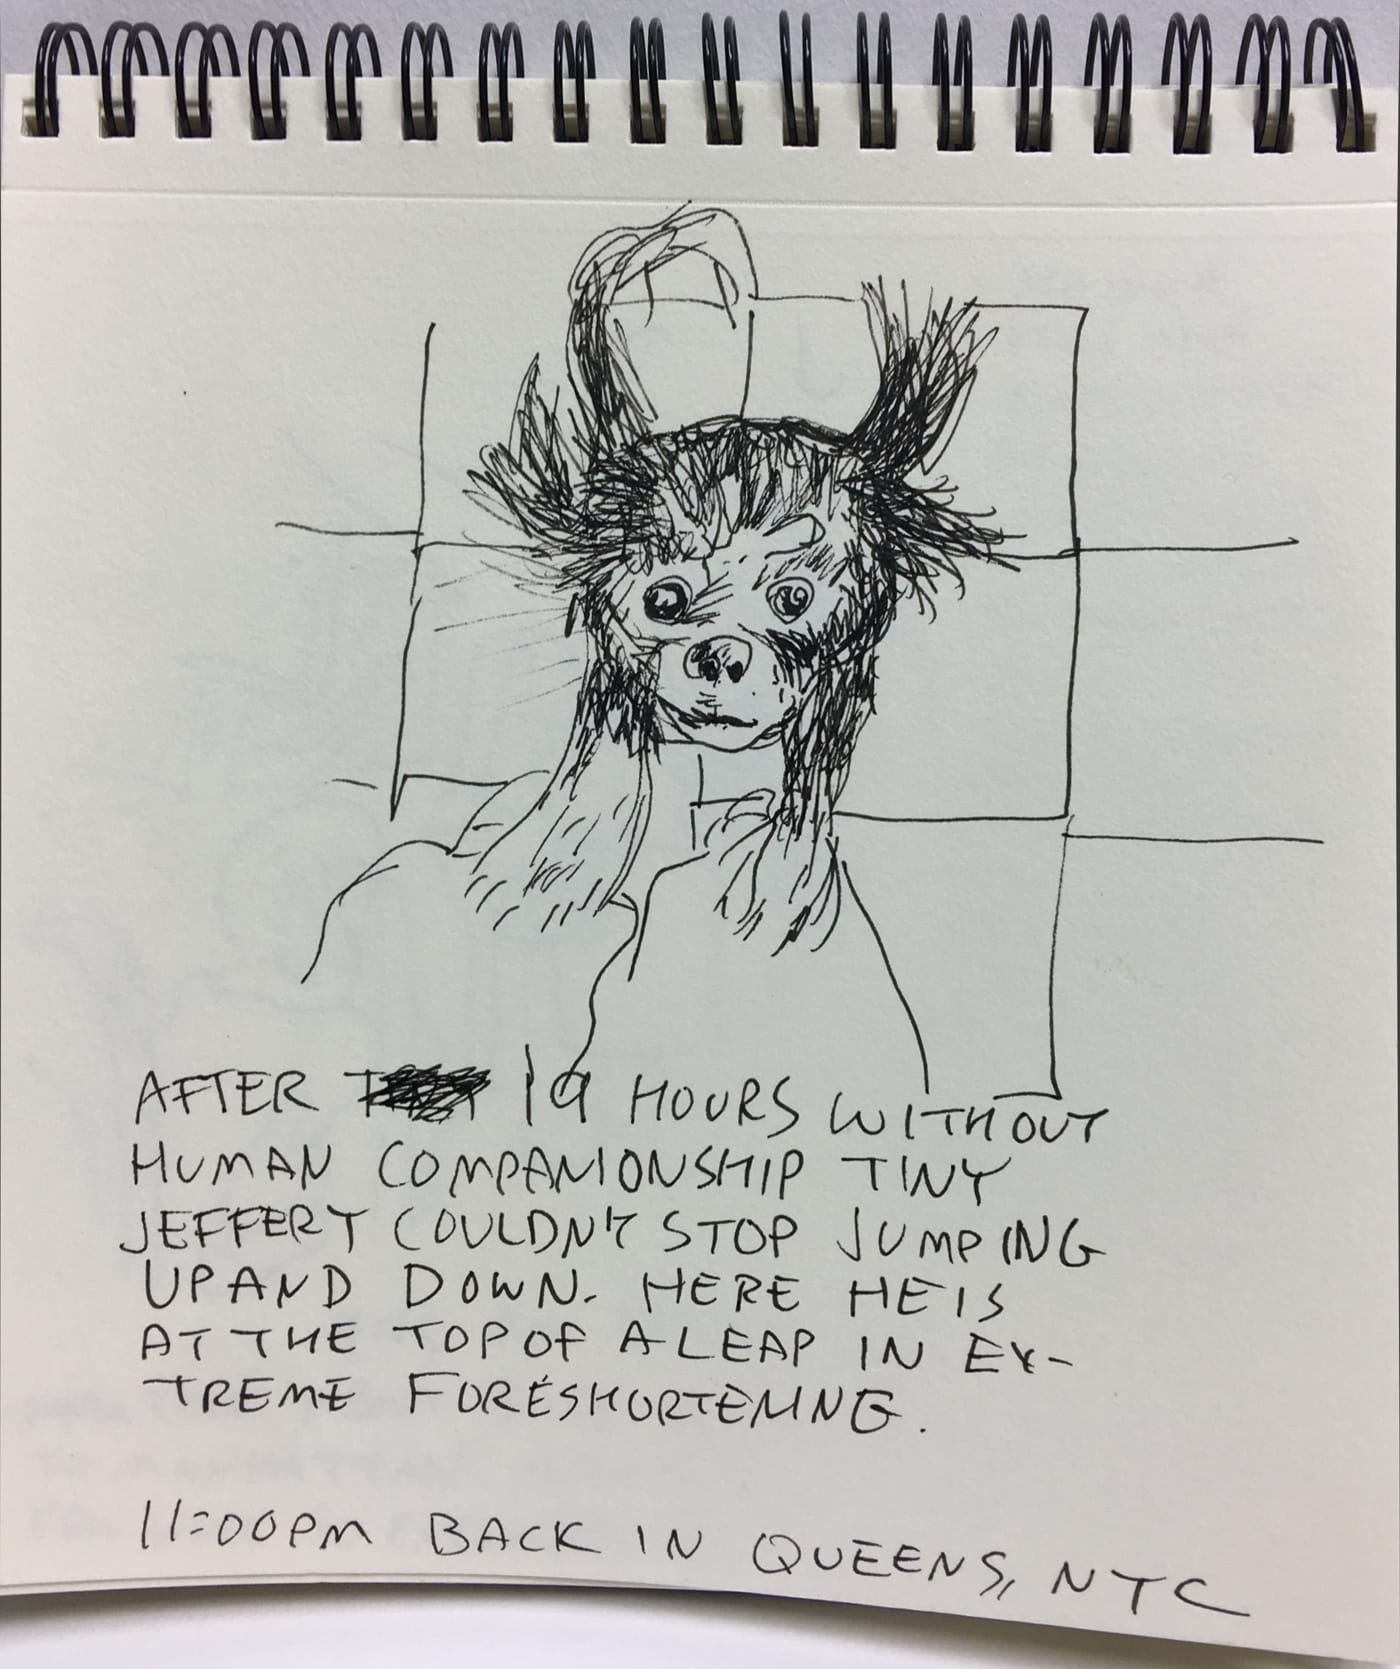 AFTER 19 HOURS WITHOUT
HUMAN COMPANIONSHIP TINY
JEFFERY COULDN'T STOP JUMPING
UP AND DOWN. HERE HE IS
AT THE TOP OF A LEAP IN EX-
TREME FORESHORTENING.
11:00PM BACK IN QUEENS, NYC